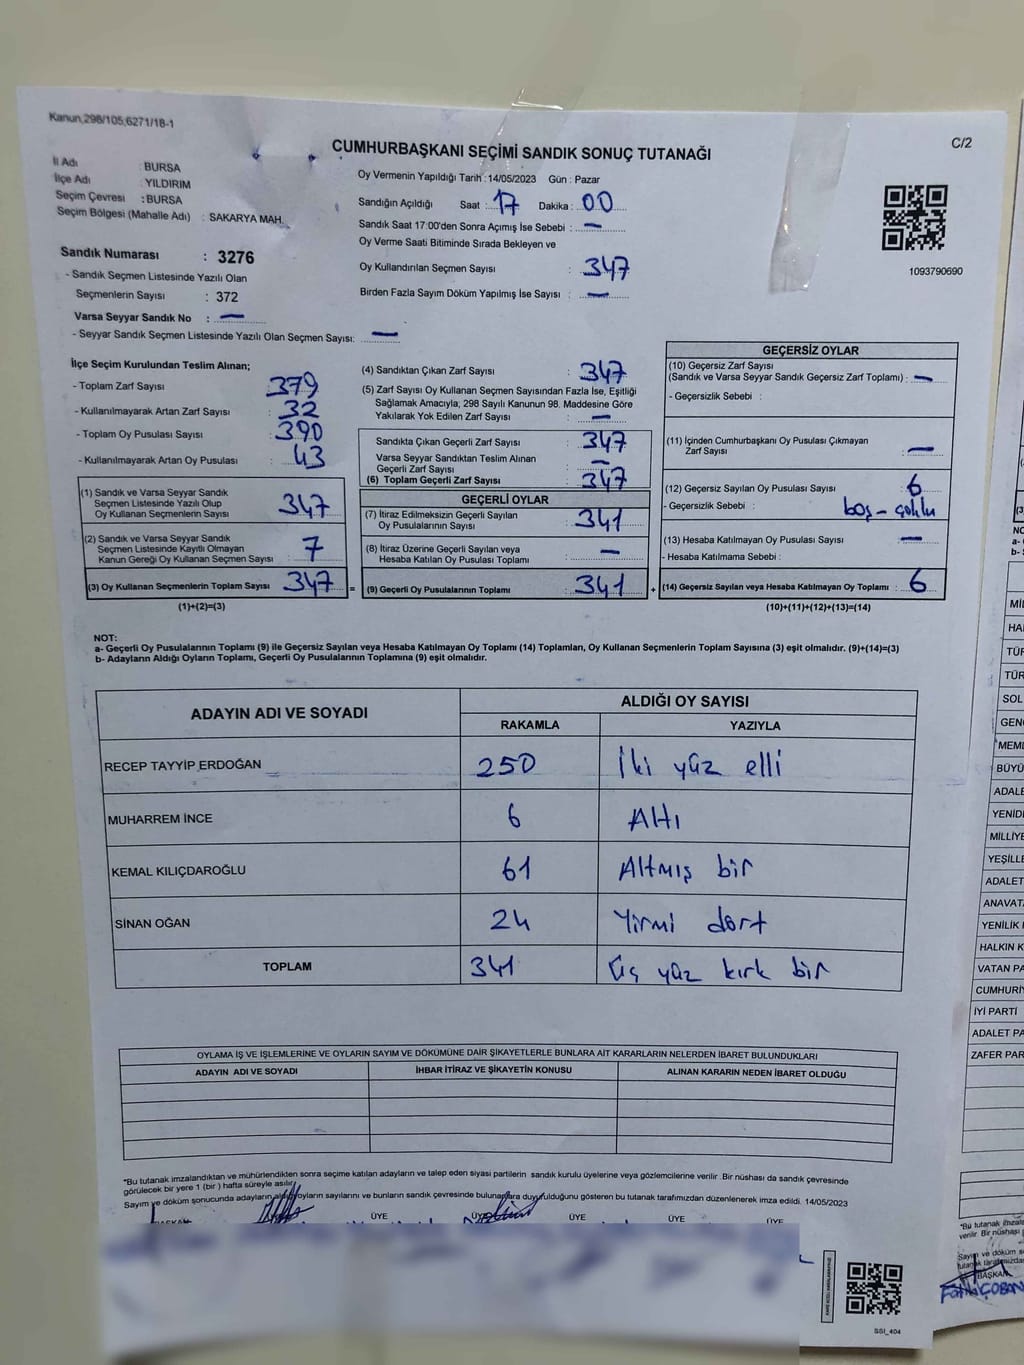 Kanun,298/105,6271/18-1
C/2
CUMHURBAŞKANI SEÇİMİ SANDIK SONUÇ TUTANAĞI
İl Adı : BURSA
İlçe Adı : YILDIRIM
Seçim Çevresi : BURSA
Seçim Bölgesi (Mahalle Adı) : SAKARYA MAH.
Sandık Numarası : 3276
- Sandık Seçmen Listesinde Yazılı Olan
Seçmenlerin Sayısı : 372
Varsa Seyyar Sandık No : —
- Seyyar Sandık Seçmen Listesinde Yazılı Olan Seçmen Sayısı: —
Oy Vermenin Yapıldığı Tarih : 14/05/2023 Gün : Pazar
Sandığın Açıldığı Saat : 17 Dakika : 00
Sandık Saat 17:00'den Sonra Açımış İse Sebebi : —
Oy Verme Saati Bitiminde Sırada Bekleyen ve
Oy Kullandırılan Seçmen Sayısı : 347
Birden Fazla Sayım Döküm Yapılmış İse Sayısı : —
1093790690
İlçe Seçim Kurulundan Teslim Alınan;
- Toplam Zarf Sayısı : 379
- Kullanılmayarak Artan Zarf Sayısı : 32
- Toplam Oy Pusulası Sayısı : 390
- Kullanılmayarak Artan Oy Pusulası : 43
(1) Sandık ve Varsa Seyyar Sandık
Seçmen Listesinde Yazılı Olup
Oy Kullanan Seçmenlerin Sayısı : 347
(2) Sandık ve Varsa Seyyar Sandık
Seçmen Listesinde Kayıtlı Olmayan
Kanun Gereği Oy Kullanan Seçmen Sayısı : 7
(3) Oy Kullanan Seçmenlerin Toplam Sayısı : 347 =
(1)+(2)=(3)
(4) Sandıktan Çıkan Zarf Sayısı : 347
(5) Zarf Sayısı Oy Kullanan Seçmen Sayısından Fazla İse, Eşitliği
Sağlamak Amacıyla; 298 Sayılı Kanunun 98. Maddesine Göre
Yakılarak Yok Edilen Zarf Sayısı : —
Sandıkta Çıkan Geçerli Zarf Sayısı : 347
Varsa Seyyar Sandıktan Teslim Alınan
Geçerli Zarf Sayısı : —
(6) Toplam Geçerli Zarf Sayısı : 347
GEÇERLİ OYLAR
(7) İtiraz Edilmeksizin Geçerli Sayılan
Oy Pusulalarının Sayısı : 341
(8) İtiraz Üzerine Geçerli Sayılan veya
Hesaba Katılan Oy Pusulası Toplamı : —
(9) Geçerli Oy Pusulalarının Toplamı : 341 +
GEÇERSİZ OYLAR
(10) Geçersiz Zarf Sayısı
(Sandık ve Varsa Seyyar Sandık Geçersiz Zarf Toplamı) : —
- Geçersizlik Sebebi :
(11) İçinden Cumhurbaşkanı Oy Pusulası Çıkmayan
Zarf Sayısı : —
(12) Geçersiz Sayılan Oy Pusulası Sayısı : 6
- Geçersizlik Sebebi : boş - çoklu
(13) Hesaba Katılmayan Oy Pusulası Sayısı : —
- Hesaba Katılmama Sebebi :
(14) Geçersiz Sayılan veya Hesaba Katılmayan Oy Toplamı : 6
(10)+(11)+(12)+(13)=(14)
NOT:
a- Geçerli Oy Pusulalarının Toplamı (9) ile Geçersiz Sayılan veya Hesaba Katılmayan Oy Toplamı (14) Toplamları, Oy Kullanan Seçmenlerin Toplam Sayısına (3) eşit olmalıdır. (9)+(14)=(3)
b- Adayların Aldığı Oyların Toplamı, Geçerli Oy Pusulalarının Toplamına (9) eşit olmalıdır.
ADAYIN ADI VE SOYADI
ALDIĞI OY SAYISI
RAKAMLA YAZIYLA
RECEP TAYYİP ERDOĞAN 250 İki yüz elli
MUHARREM İNCE 6 Altı
KEMAL KILIÇDAROĞLU 61 Altmış bir
SİNAN OĞAN 24 Yirmi dört
TOPLAM 341 Üç yüz kırk bir
OYLAMA İŞ VE İŞLEMLERİNE VE OYLARIN SAYIM VE DÖKÜMÜNE DAİR ŞİKAYETLERLE BUNLARA AİT KARARLARIN NELERDEN İBARET BULUNDUKLARI
ADAYIN ADI VE SOYADI İHBAR İTİRAZ VE ŞİKAYETİN KONUSU ALINAN KARARIN NEDEN İBARET OLDUĞU
*Bu tutanak imzalandıktan ve mühürlendikten sonra seçime katılan adayların ve talep eden siyasi partilerin sandık kurulu üyelerine veya gözlemcilerine verilir. Bir nüshası da sandık çevresinde
görülecek bir yere 1 (bir ) hafta süreyle asılır.
Sayım ve döküm sonucunda adayların aldığı oyların sayılarını ve bunların sandık çevresinde bulunanlara duyurulduğunu gösteren bu tutanak tarafımızdan düzenlenerek imza edildi. 14/05/2023
BAŞKAN ÜYE ÜYE ÜYE ÜYE ÜYE
SSI_404
SOL
İYİ PARTİ
VATAN PA
ADALET PA
ZAFER PAR
BAŞKAN
ÇOBAN